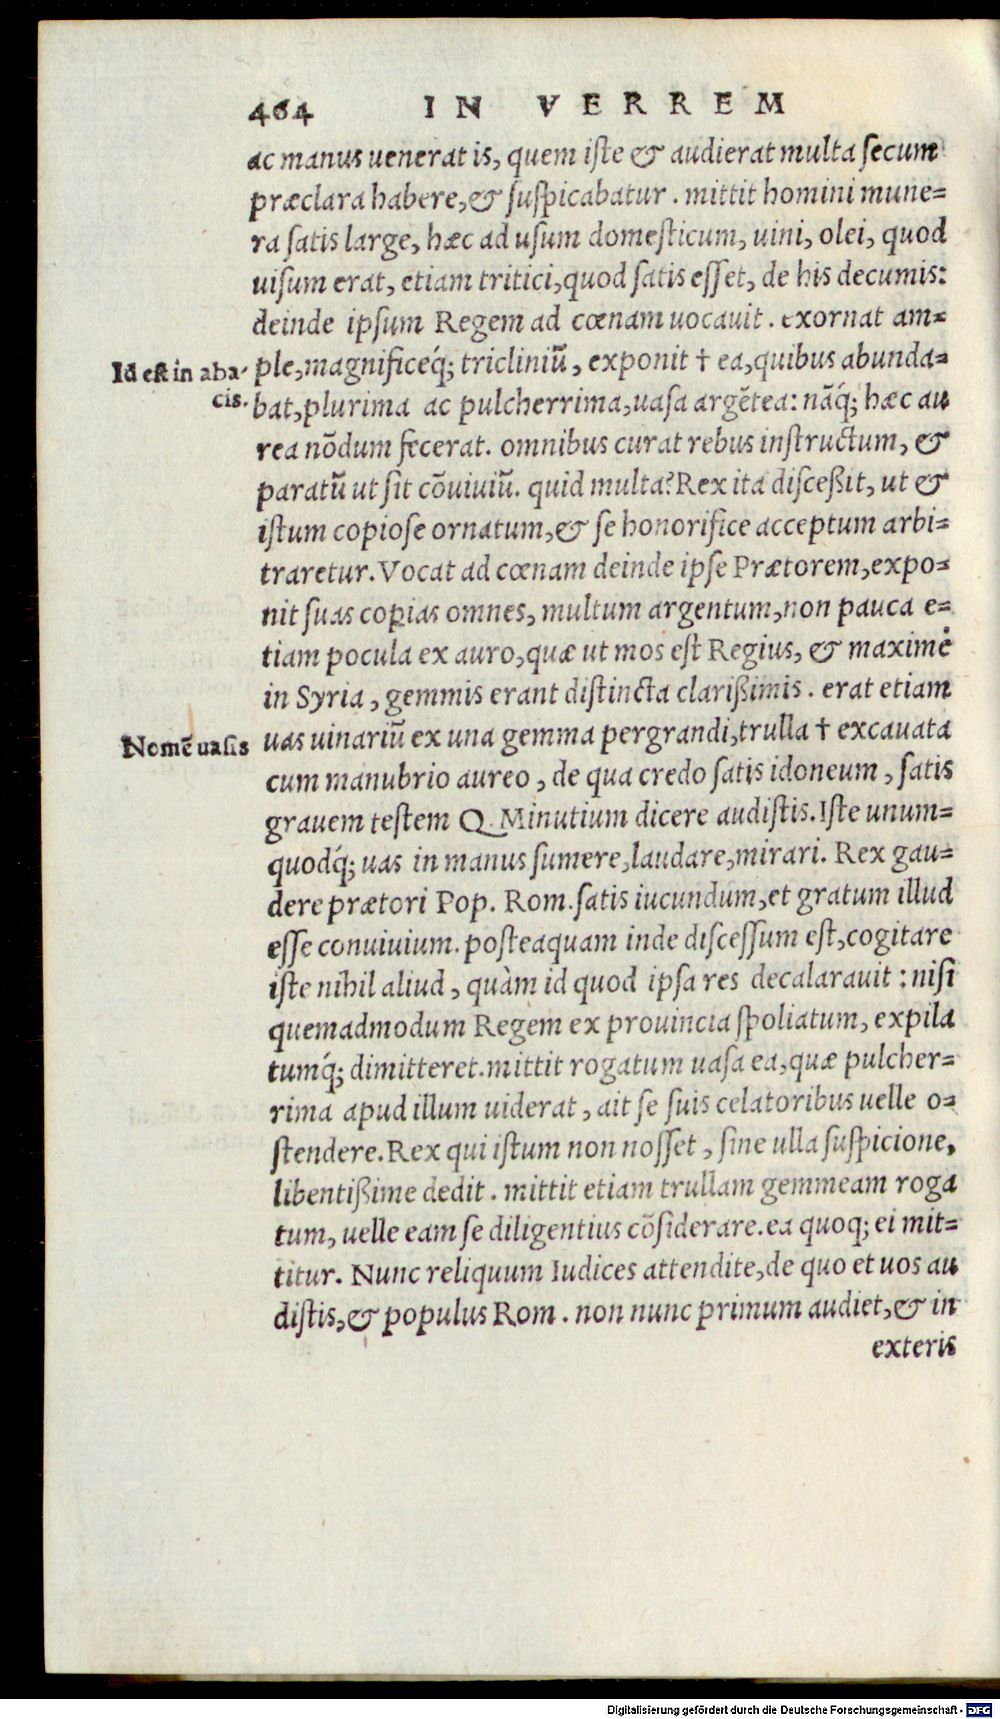 464 IN VERREM
ac manus uenerat is, quem iste & audierat multa secum
præclara habere, & suspicabatur. mittit homini mune=
ra satis large, hæc ad usum domesticum, uini, olei, quod
uisum erat, etiam tritici, quod satis esset, de his decumis:
deinde ipsum Regem ad cœnam uocauit. exornat am=
Id est in aba-
ple, magnificeq́; tricliniũ, exponit † ea, quibus abunda=
cis.
bat, plurima ac pulcherrima, uasa argẽtea: nãq́; hæc au
rea nõdum fecerat. omnibus curat rebus instructum, &
paratũ ut sit cõuiuiũ. quid multa? Rex ita disceßit, ut &
istum copiose ornatum, & se honorifice acceptum arbi=
traretur. Vocat ad cœnam deinde ipse Prætorem, expo=
nit suas copias omnes, multum argentum, non pauca e=
tiam pocula ex auro, quæ ut mos est Regius, & maximè
in Syria, gemmis erant distincta clarißimis. erat etiam
Nomẽ uasis
uas uinariũ ex una gemma pergrandi, trulla † excauata
cum manubrio aureo, de qua credo satis idoneum, satis
grauem testem Q. Minutium dicere audistis. Iste unum=
quodq́; uas in manus sumere, laudare, mirari. Rex gau=
dere prætori Pop. Rom. satis iucundum, et gratum illud
esse conuiuium. posteaquam inde discessum est, cogitare
iste nihil aliud, quàm id quod ipsa res decalarauit: nisi
quemadmodum Regem ex prouincia spoliatum, expila
tumq́; dimitteret. mittit rogatum uasa ea, quæ pulcher=
rima apud illum uiderat, ait se suis celatoribus uelle o=
stendere. Rex qui istum non nosset, sine ulla suspicione,
libentißime dedit. mittit etiam trullam gemmeam roga
tum, uelle eam se diligentius cõsiderare. ea quoq; ei mit=
titur. Nunc reliquum Iudices attendite, de quo et uos au
distis, & populus Rom. non nunc primum audiet, & in
exteris
Digitalisierung gefördert durch die Deutsche Forschungsgemeinschaft - DFG